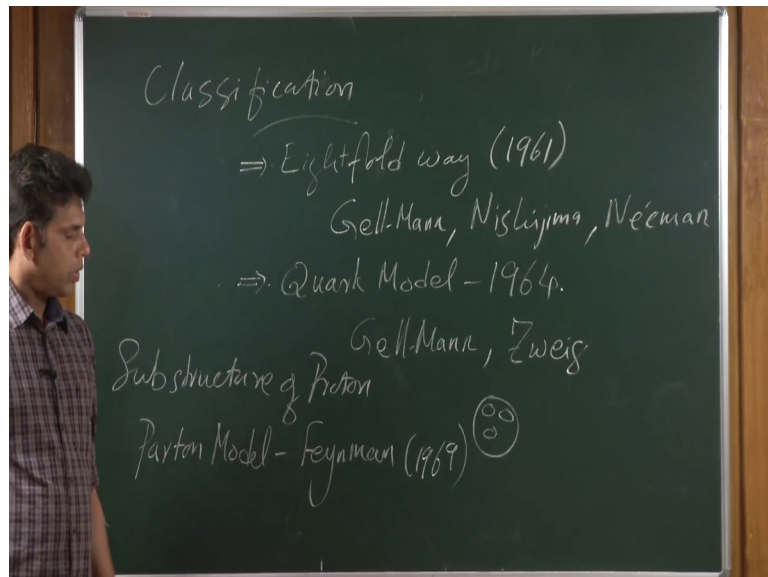 Classification
⇒ Eightfold way (1961)
Gell-Mann, Nishijima, Né'eman
⇒ Quark Model - 1964.
Gell-Mann, Zweig
Substructure of Proton
Parton Model - Feynman (1969)